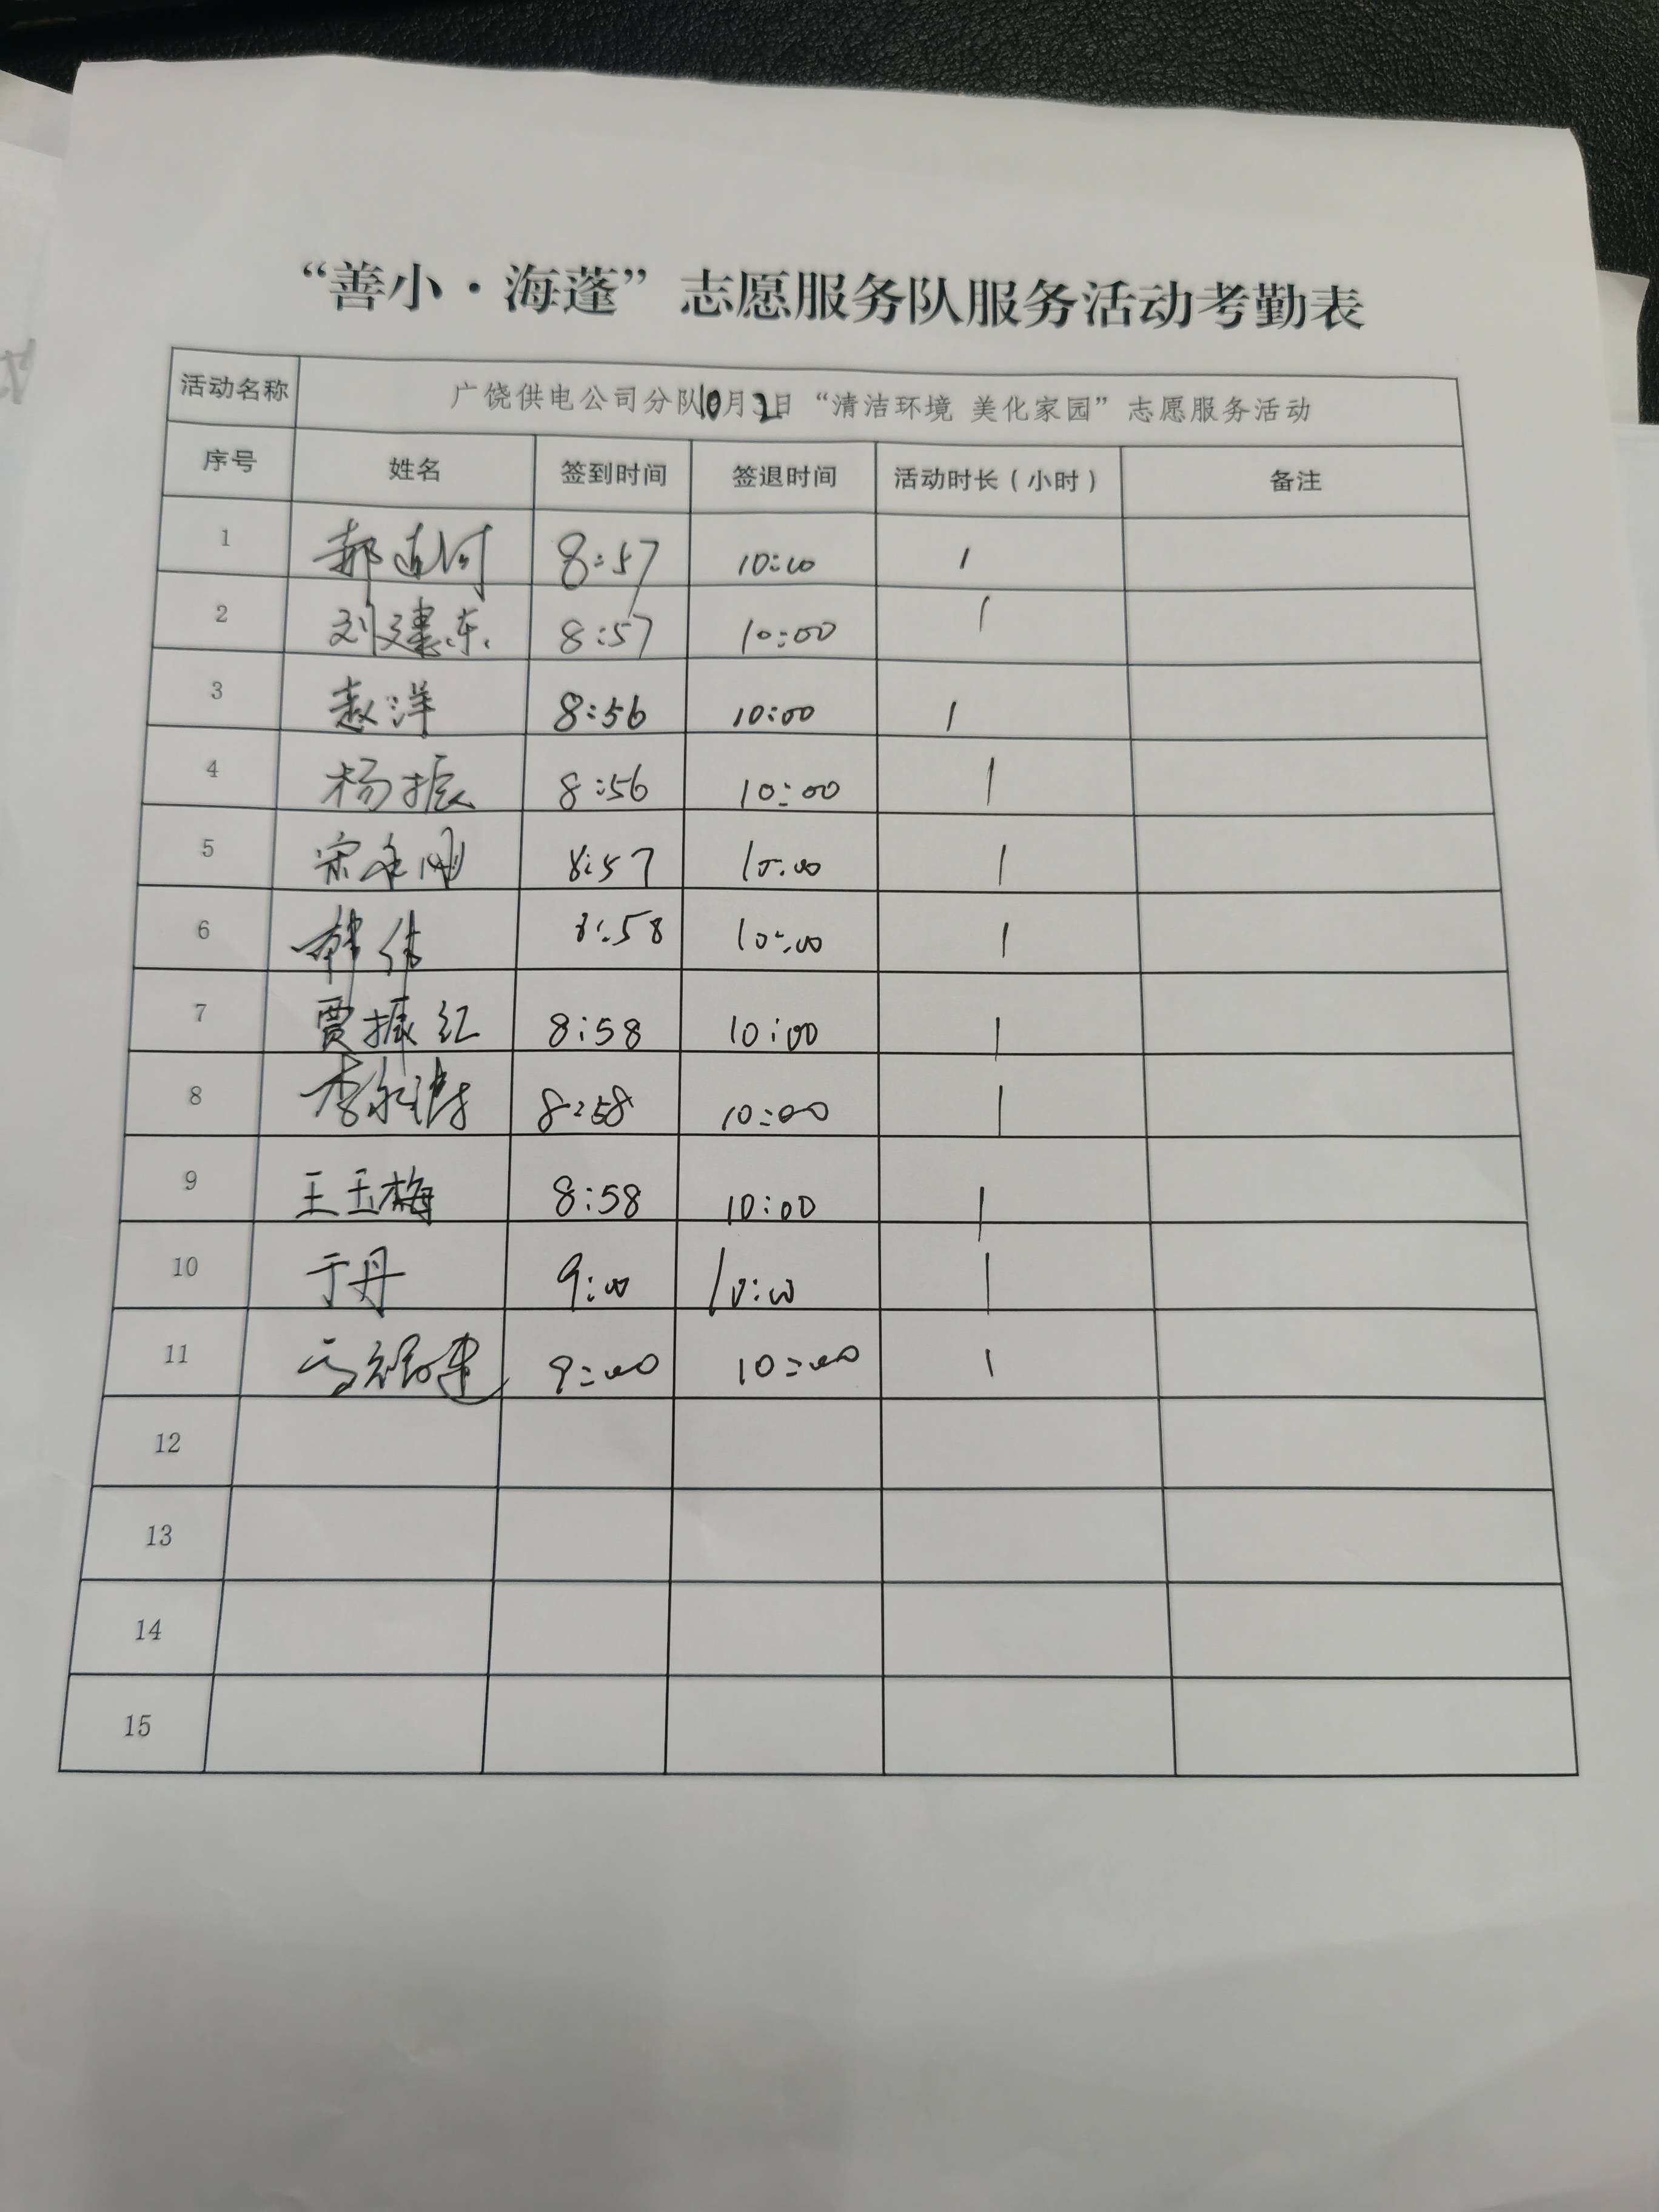 “善小·海蓬”志愿服务队服务活动考勤表
活动名称 广饶供电公司分队10月2日“清洁环境 美化家园”志愿服务活动
序号 姓名 签到时间 签退时间 活动时长（小时） 备注
1 8:57 10:00 1
2 刘建东 8:57 10:00 1
3 赵洋 8:56 10:00 1
4 杨振 8:56 10:00 1
5 8:57 10:00 1
6 韩伟 8:58 10:00 1
7 贾振红 8:58 10:00 1
8 8:58 10:00 1
9 王玉梅 8:58 10:00 1
10 于丹 9:00 10:00 1
11 9:00 10:00 1
12
13
14
15